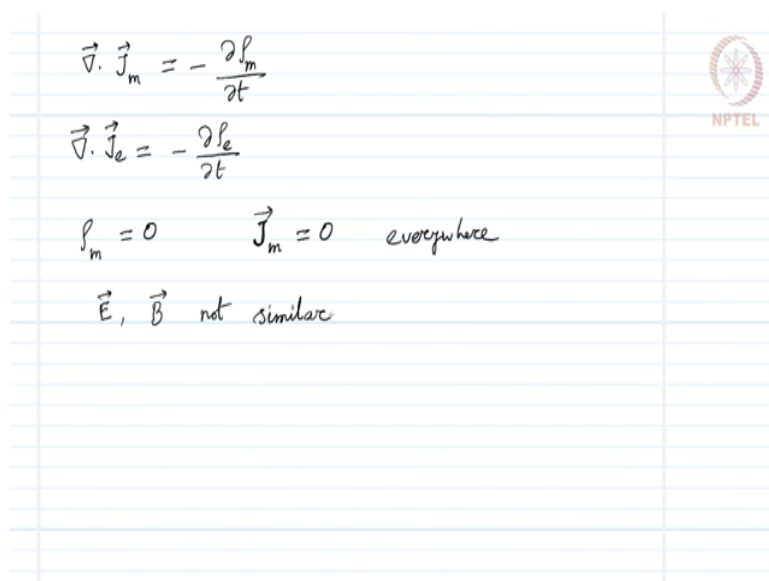 ∇⃗. J⃗ₘ = - ∂ρₘ/∂t
NPTEL
∇⃗. J⃗ₑ = - ∂ρₑ/∂t
ρₘ = 0 J⃗ₘ = 0 everywhere
E⃗, B⃗ not similar